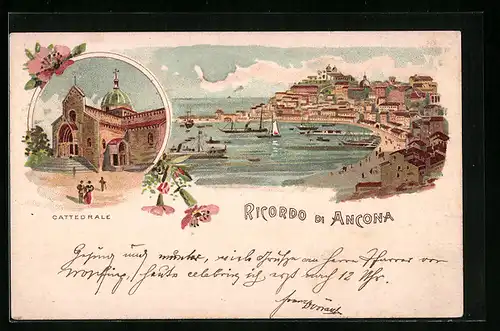 CATTEDRALE
RICORDO DI ANCONA
Gesund und munter, viele Grüße an Herrn Pfarrer von
heute celebrir ich erst nach 12 Uhr.